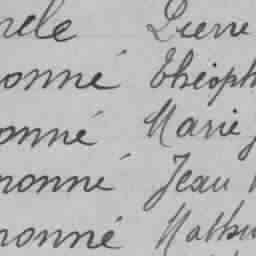 rele Pierre
onné Théoph
onné Marie J
nonné Jean
nonné Mathu